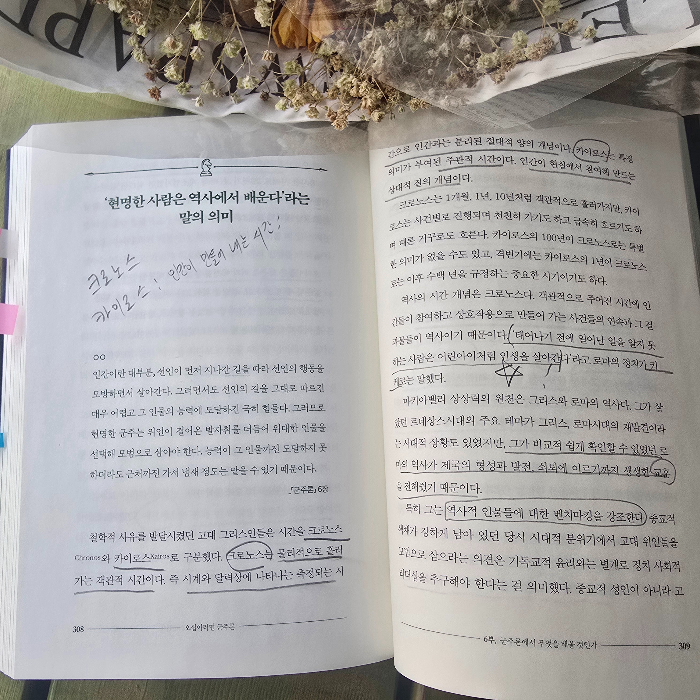 '현명한 사람은 역사에서 배운다'라는
말의 의미
크로노스
카이로스: 인간이 만들어 내는 시간!
인간이란 대부분, 선인이 먼저 지나간 길을 따라 선인의 행동을
모방하면서 살아간다. 그러면서도 선인의 길을 그대로 따르진
매우 어렵고 그 인물의 능력에 도달하긴 극히 힘들다. 그러므로
현명한 군주는 위인이 걸어온 발자취를 더듬어 위대한 인물을
선택해 모범으로 삼아야 한다. 능력이 그 인물까진 도달하지 못
하더라도 근처까진 가서 냄새 정도는 맡을 수 있기 때문이다.
『군주론』 6장
철학적 사유를 발달시켰던 고대 그리스인들은 시간을 크로노스
Chronos와 카이로스Kairos로 구분했다. 크로노스는 물리적으로 흘러
가는 객관적 시간이다. 즉 시계와 달력상에 나타나는 측정되는 시
308
군주론
간으로 인간과는 분리된 절대적 양의 개념이다. 카이로스는 특정
의미가 부여된 주관적 시간이다. 인간이 현실에서 만드는
상대적 질의 개념이다.
크로노스는 1개월, 1년, 10년처럼 객관적으로 흘러가지만, 카이
로스는 사건별로 진행되며 천천히 가기도 하고 급속히 흐르기도 하
며 때론 거꾸로도 흐른다. 카이로스의 100년이 크로노스로는 특별
한 의미가 없을 수도 있고, 격변기에는 카이로스의 1년이 크로노스
로는 이후 수백 년을 규정하는 중요한 시기이기도 하다.
역사의 시간 개념은 크로노스다. 객관적으로 주어진 시간에 인
간들이 참여하고 상호작용으로 만들어 가는 사건들의 연속과 그 결
과물들이 역사이기 때문이다. '태어나기 전에 일어난 일을 알지 못
하는 사람은 어린아이처럼 인생을 살아간다'라고 로마의 정치가 키
케로는 말했다.
마키아벨리 상상력의 원천은 그리스와 로마의 역사다. 그가 살
았던 르네상스시대의 주요 테마가 그리스, 로마시대의 재발견이라
는 시대적 상황도 있었지만, 그가 비교적 쉽게 확인할 수 있었던 로
마의 역사가 제국의 형성과 발전, 쇠퇴에 이르기까지 생생한 교훈
을 전해줬기 때문이다.
특히 그는 역사적 인물들에 대한 벤치마킹을 강조한다. 종교적
색채가 강하게 남아 있던 당시 시대적 분위기에서 고대 위인들을
모범으로 삼으라는 의견은 기독교적 윤리와는 별개로 정치 사회적
리더십을 추구해야 한다는 걸 의미했다. 종교적 성인이 아니라 고
6부. 군주론에서 무엇을 배울 것인가
309